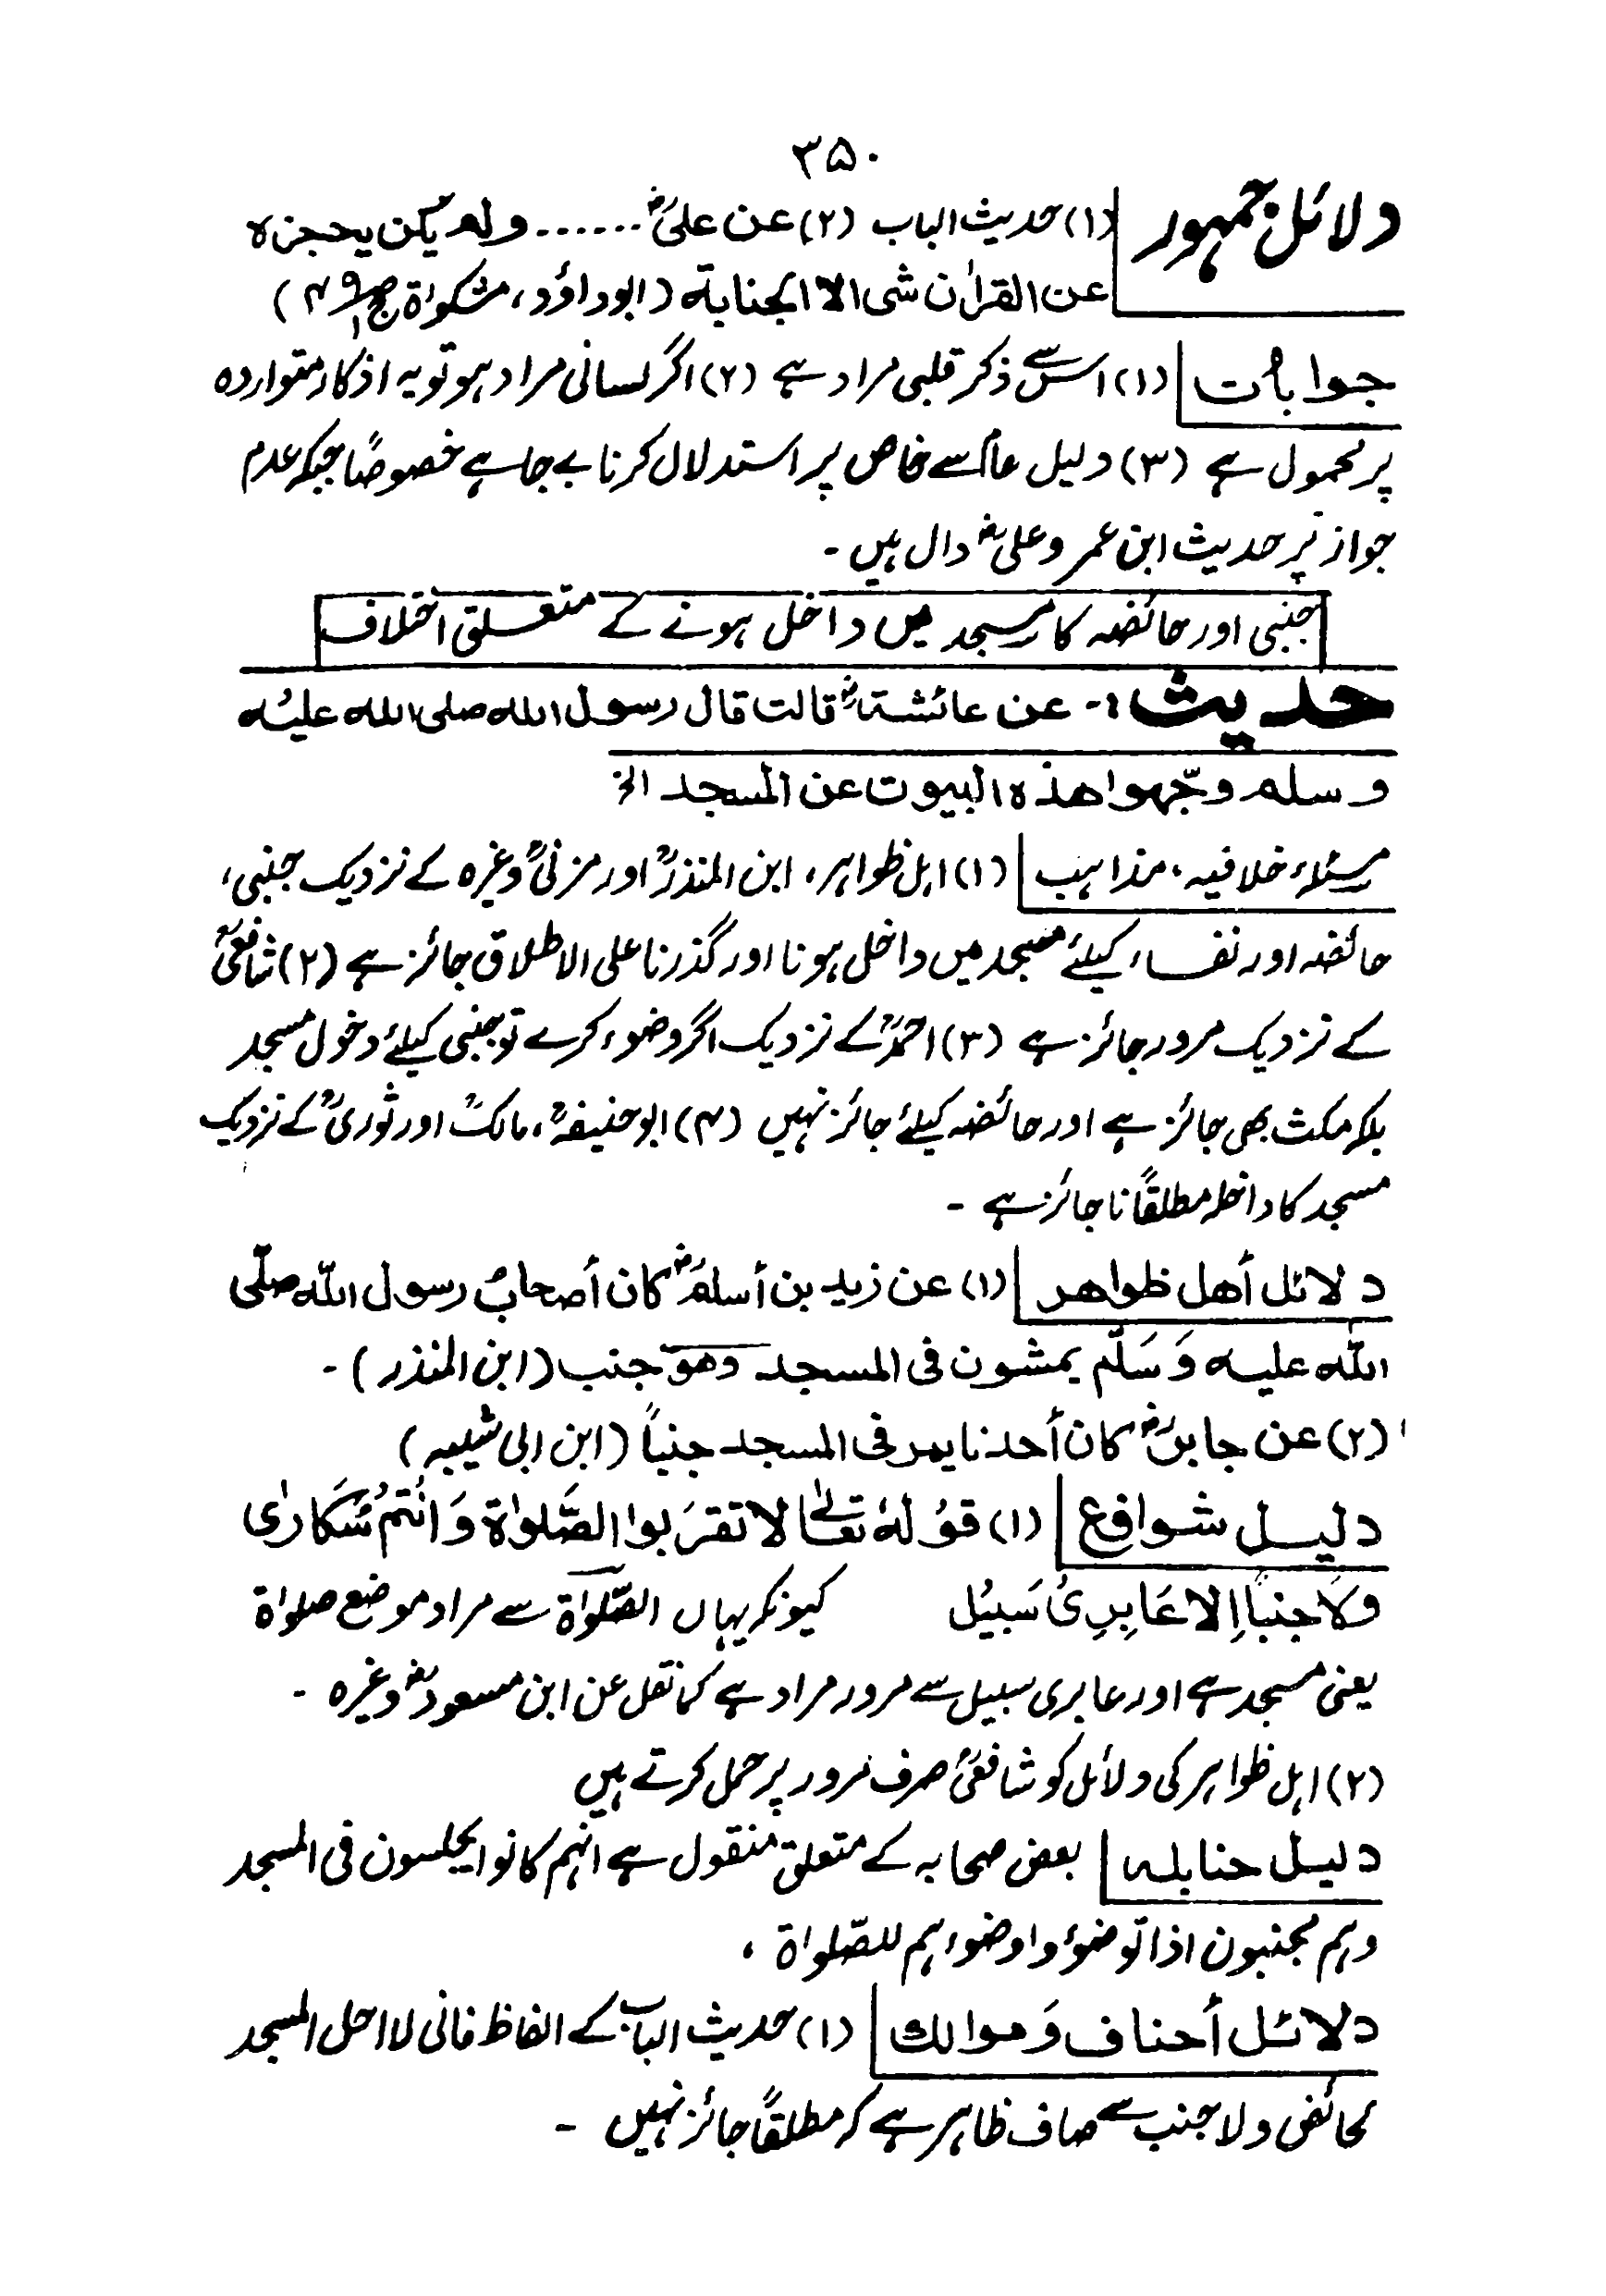 ۳۵۰
دلائل جمہور (۱) حدیث الباب (۲) عن علیؓ ...... ولم یکن یحجزہ
عن القراٰن شی الا الجنابة (ابوداؤد، مشکوٰة ج۱ ص۴۹)
جوابات (۱) اس سے ذکر قلبی مراد ہے (۲) اگر لسانی مراد ہو تو یہ اذکار متواردہ
پر محمول ہے (۳) دلیل عام سے خاص پر استدلال کرنا بے جا ہے خصوصًا جبکہ عدم
جواز پر حدیث ابن عمر وعلیؓ دال ہیں۔
جنبی اور حائضہ کا مسجد میں داخل ہونے کے متعلق اختلاف
حدیث :- عن عائشةؓ قالت قال رسول الله صلی الله علیه
وسلم وجّهوا هذه البیوت عن المسجد الخ
مسئلہء خلافیہ، مذاہب (۱) اہل ظواہر، ابن المنذرؒ اور مزنیؒ وغیرہ کے نزدیک جنبی،
حائضہ اور نفساء کیلئے مسجد میں داخل ہونا اور گذرنا علی الاطلاق جائز ہے (۲) شافعیؒ
کے نزدیک مرور جائز ہے (۳) احمدؒ کے نزدیک اگر وضوء کرے تو جنبی کیلئے دخول مسجد
بلکہ مکث بھی جائز ہے اور حائضہ کیلئے جائز نہیں (۴) ابوحنیفہؒ، مالکؒ اور ثوریؒ کے نزدیک
مسجد کا داخلہ مطلقًا ناجائز ہے۔
دلائل أهل ظواهر (۱) عن زید بن أسلمؓ کان أصحابُ رسول اللّٰه صلّی
اللّٰه علیه وَسَلَّم یمشون فی المسجد وهو جنب (ابن المنذر)۔
(۲) عن جابرؓ کان أحدنا یمر فی المسجد جنباً (ابن ابی شیبہ)
دلیل شوافع (۱) قوْلهٗ تعالٰی لا تقرَبوا الصَّلوٰة وَاَنْتُمْ سُکَارٰی
وَلَا جنبًا اِلا عَابِرِیْ سَبِیْل کیونکہ یہاں الصّلوٰة سے مراد موضع صلوٰة
یعنی مسجد ہے اور عابری سبیل سے مرور مراد ہے کما نقل عن ابن مسعودؓ وغیرہ۔
(۲) اہل ظواہر کی دلائل کو شافعیؒ صرف مرور پر حمل کرتے ہیں
دلیل حنابلہ بعض صحابہ کے متعلق منقول ہے انہم کانوا یجلسون فی المسجد
وہم مجنبون اذا توضؤا وضوء ہم للصّلوٰة،
دلائل أحناف وَموالك (۱) حدیث الباب کے الفاظ فانی لا احل المسجد
لحائض ولا جنب سے صاف ظاہر ہے کہ مطلقًا جائز نہیں۔